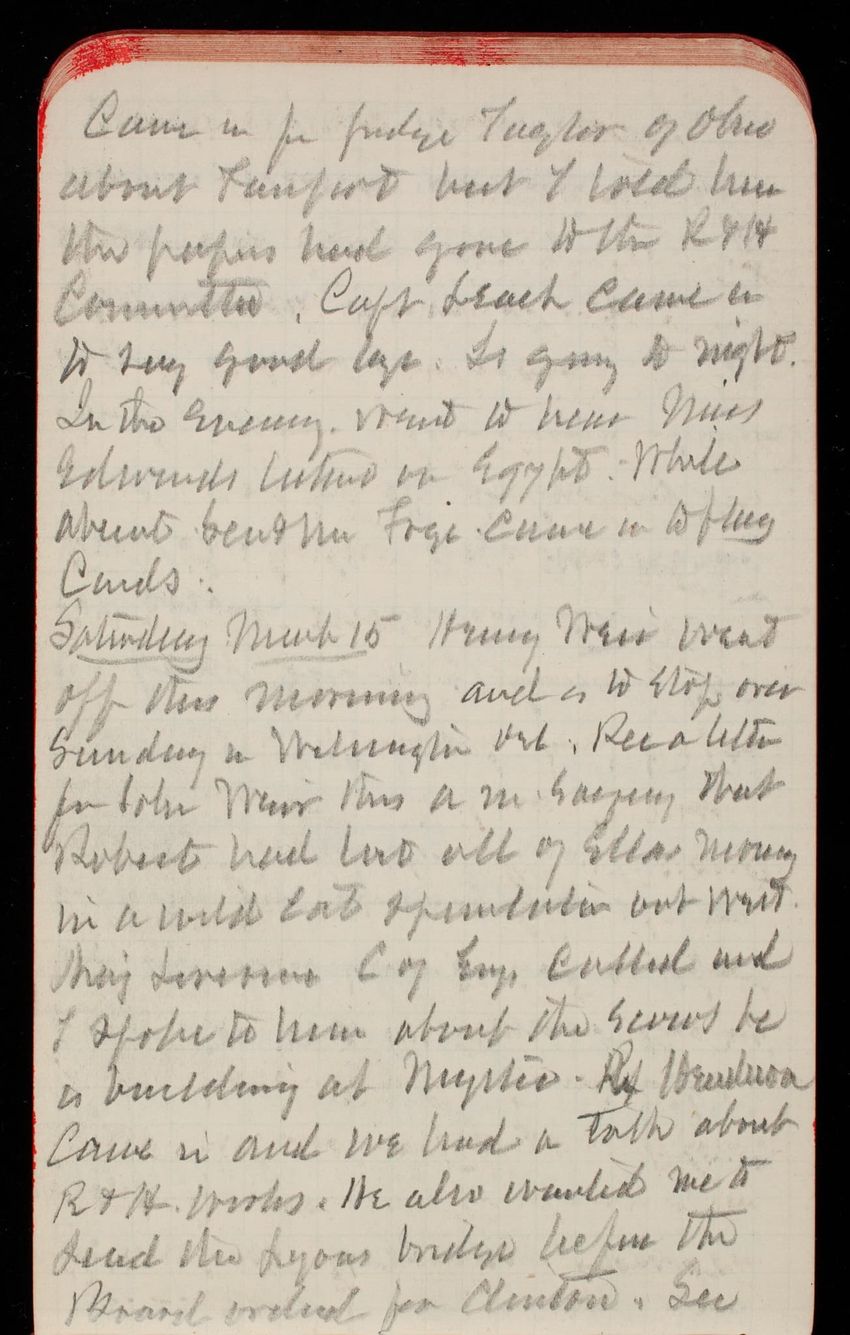 Came in for Judge Taylor of Ohio
about but I told him
the papers had gone to the R & H
Committee. Capt Leach came in
to say good bye. Is going to night.
In the evening went to hear Miss
Edwards lecture on Egypt. While
absent Gen & Mrs came in to play
Cards.
Saturday March 15 Henry Weir went
off this morning and is to stop over
Sunday in Wilmington Del. Rec a letter
fr John Weir this a m saying that
Robert had lost all of Ellas money
in a wild cat speculation out west.
Maj Livermore C of Eng. called and
I spoke to him about the Scows he
is building at Mystic. Rep Henderson
Came in and we had a talk about
R & H. works. He also wanted me to
send the Lyons bridge before the
Board ordered for Clinton. Gen